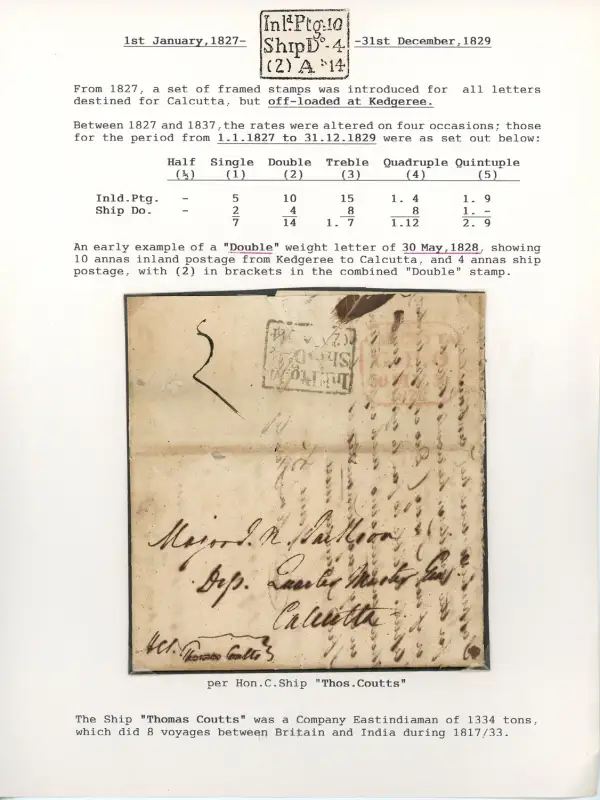 1st January,1827- -31st December,1829
Inld.Ptg:10
ShipDo-4
(2) A s 14
From 1827, a set of framed stamps was introduced for all letters
destined for Calcutta, but off-loaded at Kedgeree.
Between 1827 and 1837,the rates were altered on four occasions; those
for the period from 1.1.1827 to 31.12.1829 were as set out below:
Half Single Double Treble Quadruple Quintuple
(½) (1) (2) (3) (4) (5)
Inld.Ptg. - 5 10 15 1. 4 1. 9
Ship Do. - 2 4 8 8 1. -
7 14 1. 7 1.12 2. 9
An early example of a "Double" weight letter of 30 May,1828, showing
10 annas inland postage from Kedgeree to Calcutta, and 4 annas ship
postage, with (2) in brackets in the combined "Double" stamp.
Inld.Ptg
ShipDo
Major J. N. Jackson
Dep. Quarter Master Genl
Calcutta
HCS. Thomas Coutts
per Hon.C.Ship "Thos.Coutts"
The Ship "Thomas Coutts" was a Company Eastindiaman of 1334 tons,
which did 8 voyages between Britain and India during 1817/33.